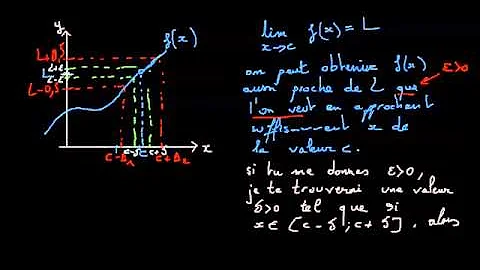 y
f(x)
L+0,5
L+ε
L
L-ε
L-0,5
c-Δ₁
c-δ
c
c+δ
c+Δ₂
x
lim f(x) = L
x→c
on peut obtenir f(x)
aussi proche de L que
ε>0
l'on veut en approchant
suffis----ent x de
la valeur c.
si tu me donnes ε>0,
je te trouverai une valeur
δ>0 tel que si
x∈ [c-δ; c+δ], alors